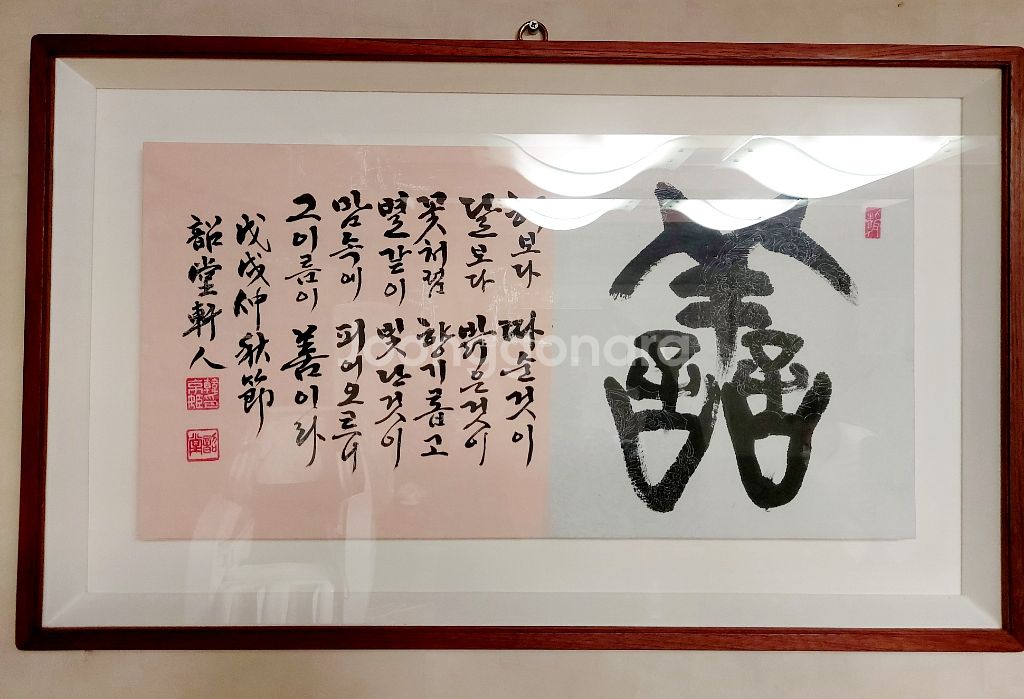 譱
해보다 따순것이
달보다 밝은것이
꽃처럼 향기롭고
별같이 빛난것이
맘속에 피어오르니
그이름이 善이라
戊戌仲秋節
韶堂軒人
韶堂
joonggonara